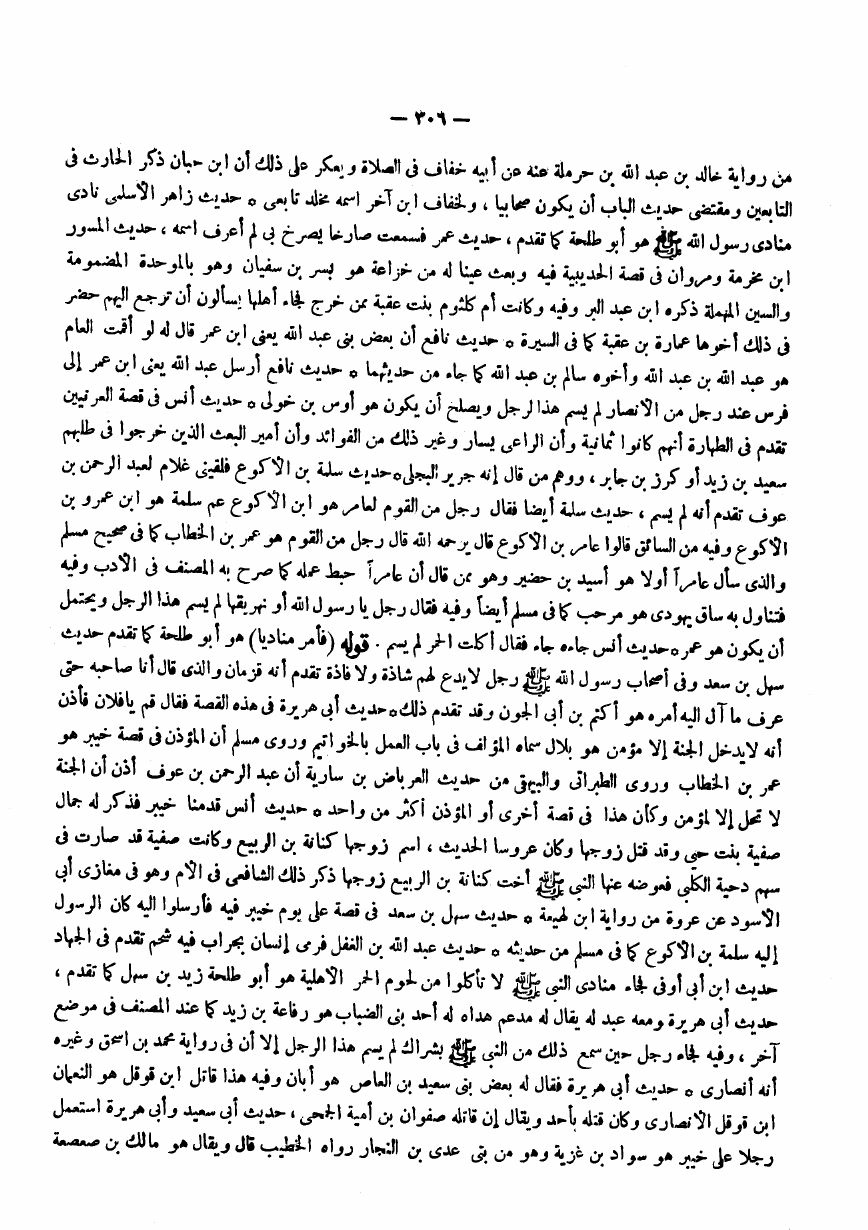 — ٣٠٦ —
من رواية خالد بن عبد الله بن حرملة عنه عن أبيه خفاف فى الصلاة ويعكر على ذلك أن ابن حبان ذكر الحارث فى
التابعين ومقتضى حديث الباب أن يكون صحابيا ، ولخفاف ابن آخر اسمه مخلد تابعى ه حديث زاهر الأسلمى نادى
منادى رسول الله ﷺ هو أبو طلحة كما تقدم ، حديث عمر فسمعت صارخا يصرخ بى لم أعرف اسمه ، حديث المسور
ابن مخرمة ومروان فى قصة الحديبية فيه وبعث عينا له من خزاعة هو بسر بن سفيان وهو بالموحدة المضمومة
والسين المهملة ذكره ابن عبد البر وفيه وكانت أم كلثوم بنت عقبة ممن خرج فجاء أهلها يسألون أن ترجع اليهم حضر
فى ذلك أخوها عمارة بن عقبة كما فى السيرة ه حديث نافع أن بعض بنى عبد الله يعنى ابن عمر قال له لو أقمت العام
هو عبد الله بن عبد الله وأخوه سالم بن عبد الله كما جاء من حديثهما ه حديث نافع أرسل عبد الله يعنى ابن عمر إلى
فرس عند رجل من الأنصار لم يسم هذا الرجل ويصلح أن يكون هو أوس بن خولى ه حديث أنس فى قصة العرنيين
تقدم فى الطهارة أنهم كانوا ثمانية وأن الراعى يسار وغير ذلك من الفوائد وأن أمير البعث الذين خرجوا فى طلبهم
سعيد بن زيد أو كرز بن جابر ، ووهم من قال إنه جرير البجلى ه حديث سلمة بن الأكوع فلقينى غلام لعبد الرحمن بن
عوف تقدم أنه لم يسم ، حديث سلمة أيضا فقال رجل من القوم لعامر هو ابن الأكوع عم سلمة هو ابن عمرو بن
الأكوع وفيه من السائق قالوا عامر بن الأكوع قال يرحمه الله قال رجل من القوم هو عمر بن الخطاب كما فى صحيح مسلم
والذى سأل عامراً أولا هو أسيد بن حضير وهو ممن قال أن عامراً حبط عمله كما صرح به المصنف فى الأدب وفيه
فتناول به ساق يهودى هو مرحب كما فى مسلم أيضاً وفيه فقال رجل يا رسول الله أو نهريقها لم يسم هذا الرجل ويحتمل
أن يكون هو عمر ه حديث أنس جاءه جاء فقال أكلت الحمر لم يسم . قوله (فأمر مناديا) هو أبو طلحة كما تقدم حديث
سهل بن سعد وفى أصحاب رسول الله ﷺ رجل لايدع لهم شاذة ولا فاذة تقدم أنه قزمان والذى قال أنا صاحبه حتى
عرف ما آل اليه أمره هو أكثم بن أبى الجون وقد تقدم ذلك ه حديث أبى هريرة فى هذه القصة فقال قم يافلان فأذن
أنه لايدخل الجنة إلا مؤمن هو بلال سماه المؤلف فى باب العمل بالخواتيم وروى مسلم أن المؤذن فى قصة خيبر هو
عمر بن الخطاب وروى الطبرانى والبيهقى من حديث العرباض بن سارية أن عبد الرحمن بن عوف أذن أن الجنة
لا تحل إلا لمؤمن وكأن هذا فى قصة أخرى أو المؤذن أكثر من واحد ه حديث أنس قدمنا خيبر فذكر له جمال
صفية بنت حى وقد قتل زوجها وكان عروسا الحديث ، اسم زوجها كنانة بن الربيع وكانت صفية قد صارت فى
سهم دحية الكلبى فعوضه عنها النبى ﷺ أخت كنانة بن الربيع زوجها ذكر ذلك الشافعى فى الأم وهو فى مغازى أبى
الأسود عن عروة من رواية ابن لهيعة ه حديث سهل بن سعد فى قصة على يوم خيبر فيه فأرسلوا اليه كان الرسول
إليه سلمة بن الأكوع كما فى مسلم من حديثه ه حديث عبد الله بن المغفل فرمى إنسان بجراب فيه شحم تقدم فى الجهاد
حديث ابن أبى أوفى فجاء منادى النبى ﷺ لا تأكلوا من لحوم الحمر الأهلية هو أبو طلحة زيد بن سهل كما تقدم ،
حديث أبى هريرة ومعه عبد له يقال له مدعم هداه له أحد بنى الضباب هو رفاعة بن زيد كما عند المصنف فى موضع
آخر ، وفيه فجاء رجل حين سمع ذلك من النبى ﷺ بشراك لم يسم هذا الرجل إلا أن فى رواية محمد بن اسحق وغيره
أنه أنصارى ه حديث أبى هريرة فقال له بعض بنى سعيد بن العاص هو أبان وفيه هذا قاتل ابن قوقل هو النعمان
ابن قوقل الأنصارى وكان قتله بأحد ويقال إن قاتله صفوان بن أمية الجمحى ، حديث أبى سعيد وأبى هريرة استعمل
رجلا على خيبر هو سواد بن غزية وهو من بنى عدى بن النجار رواه الخطيب قال ويقال هو مالك بن صعصعة